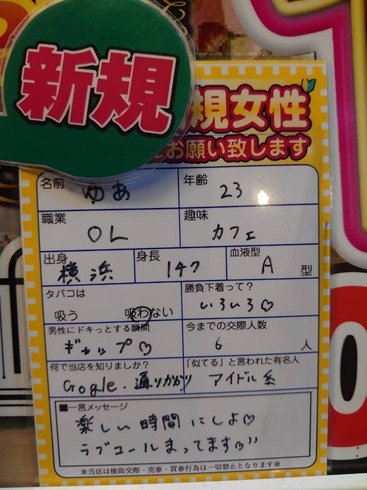 新規
規女性
お願い致します
名前 ゆあ 年齢 23
職業 OL 趣味 カフェ
出身 横浜 身長 147 血液型 A 型
タバコは 吸う 吸わない 勝負下着って? いろいろ♡
男性にドキっとする瞬間 ギャップ♡ 今までの交際人数 6 人
何で当店を知りましたか? Google.通りがかり 「似てる」と言われた有名人 アイドル系
■一言メッセージ
楽しい時間にしよ♡
ラブコールまってます
※当店は援助交際・売春・買春行為は一切禁止となります※